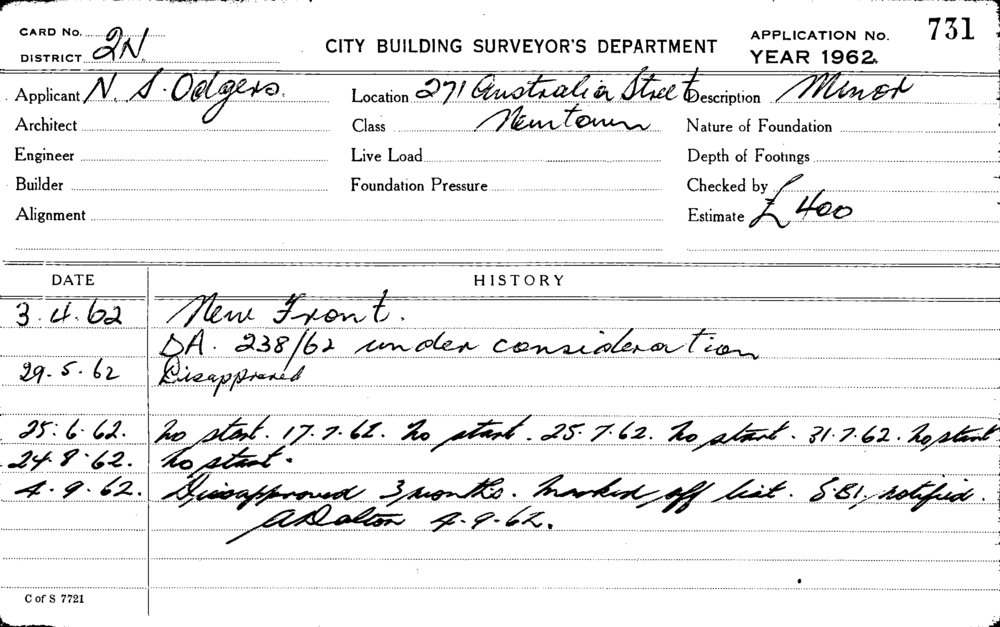 CARD No. 2N.
DISTRICT
CITY BUILDING SURVEYOR'S DEPARTMENT
APPLICATION No. 731
YEAR 1962.
Applicant N. S. Odgers. Location 271 Australia Street Description Minor
Architect Class Newtown Nature of Foundation
Engineer Live Load Depth of Footings
Builder Foundation Pressure Checked by
Alignment Estimate £400
DATE HISTORY
3.4.62 New Front.
DA. 238/62 under consideration
29.5.62 Disapproved
25.6.62. No start. 17.7.62. No start. 25.7.62. No start. 31.7.62. No start
24.8.62. No start.
4.9.62. Disapproved 3 months. Marked off list. S.B.I. notified.
A Dalton 4.9.62.
C of S 7721